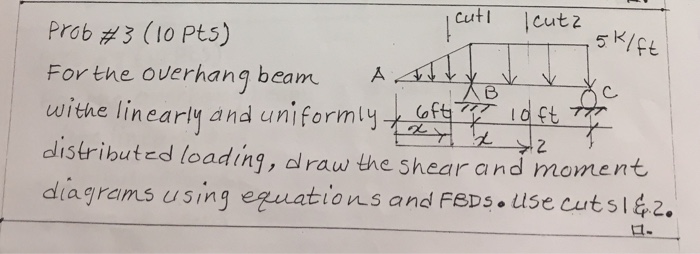 cut1 cut2
Prob #3 (10 Pts)
5 K/ft
For the overhang beam A
B C
withe linearly and uniformly 6ft 10 ft
x x 2
distributed loading, draw the shear and moment
diagrams using equations and FBDs. Use cuts 1 & 2.